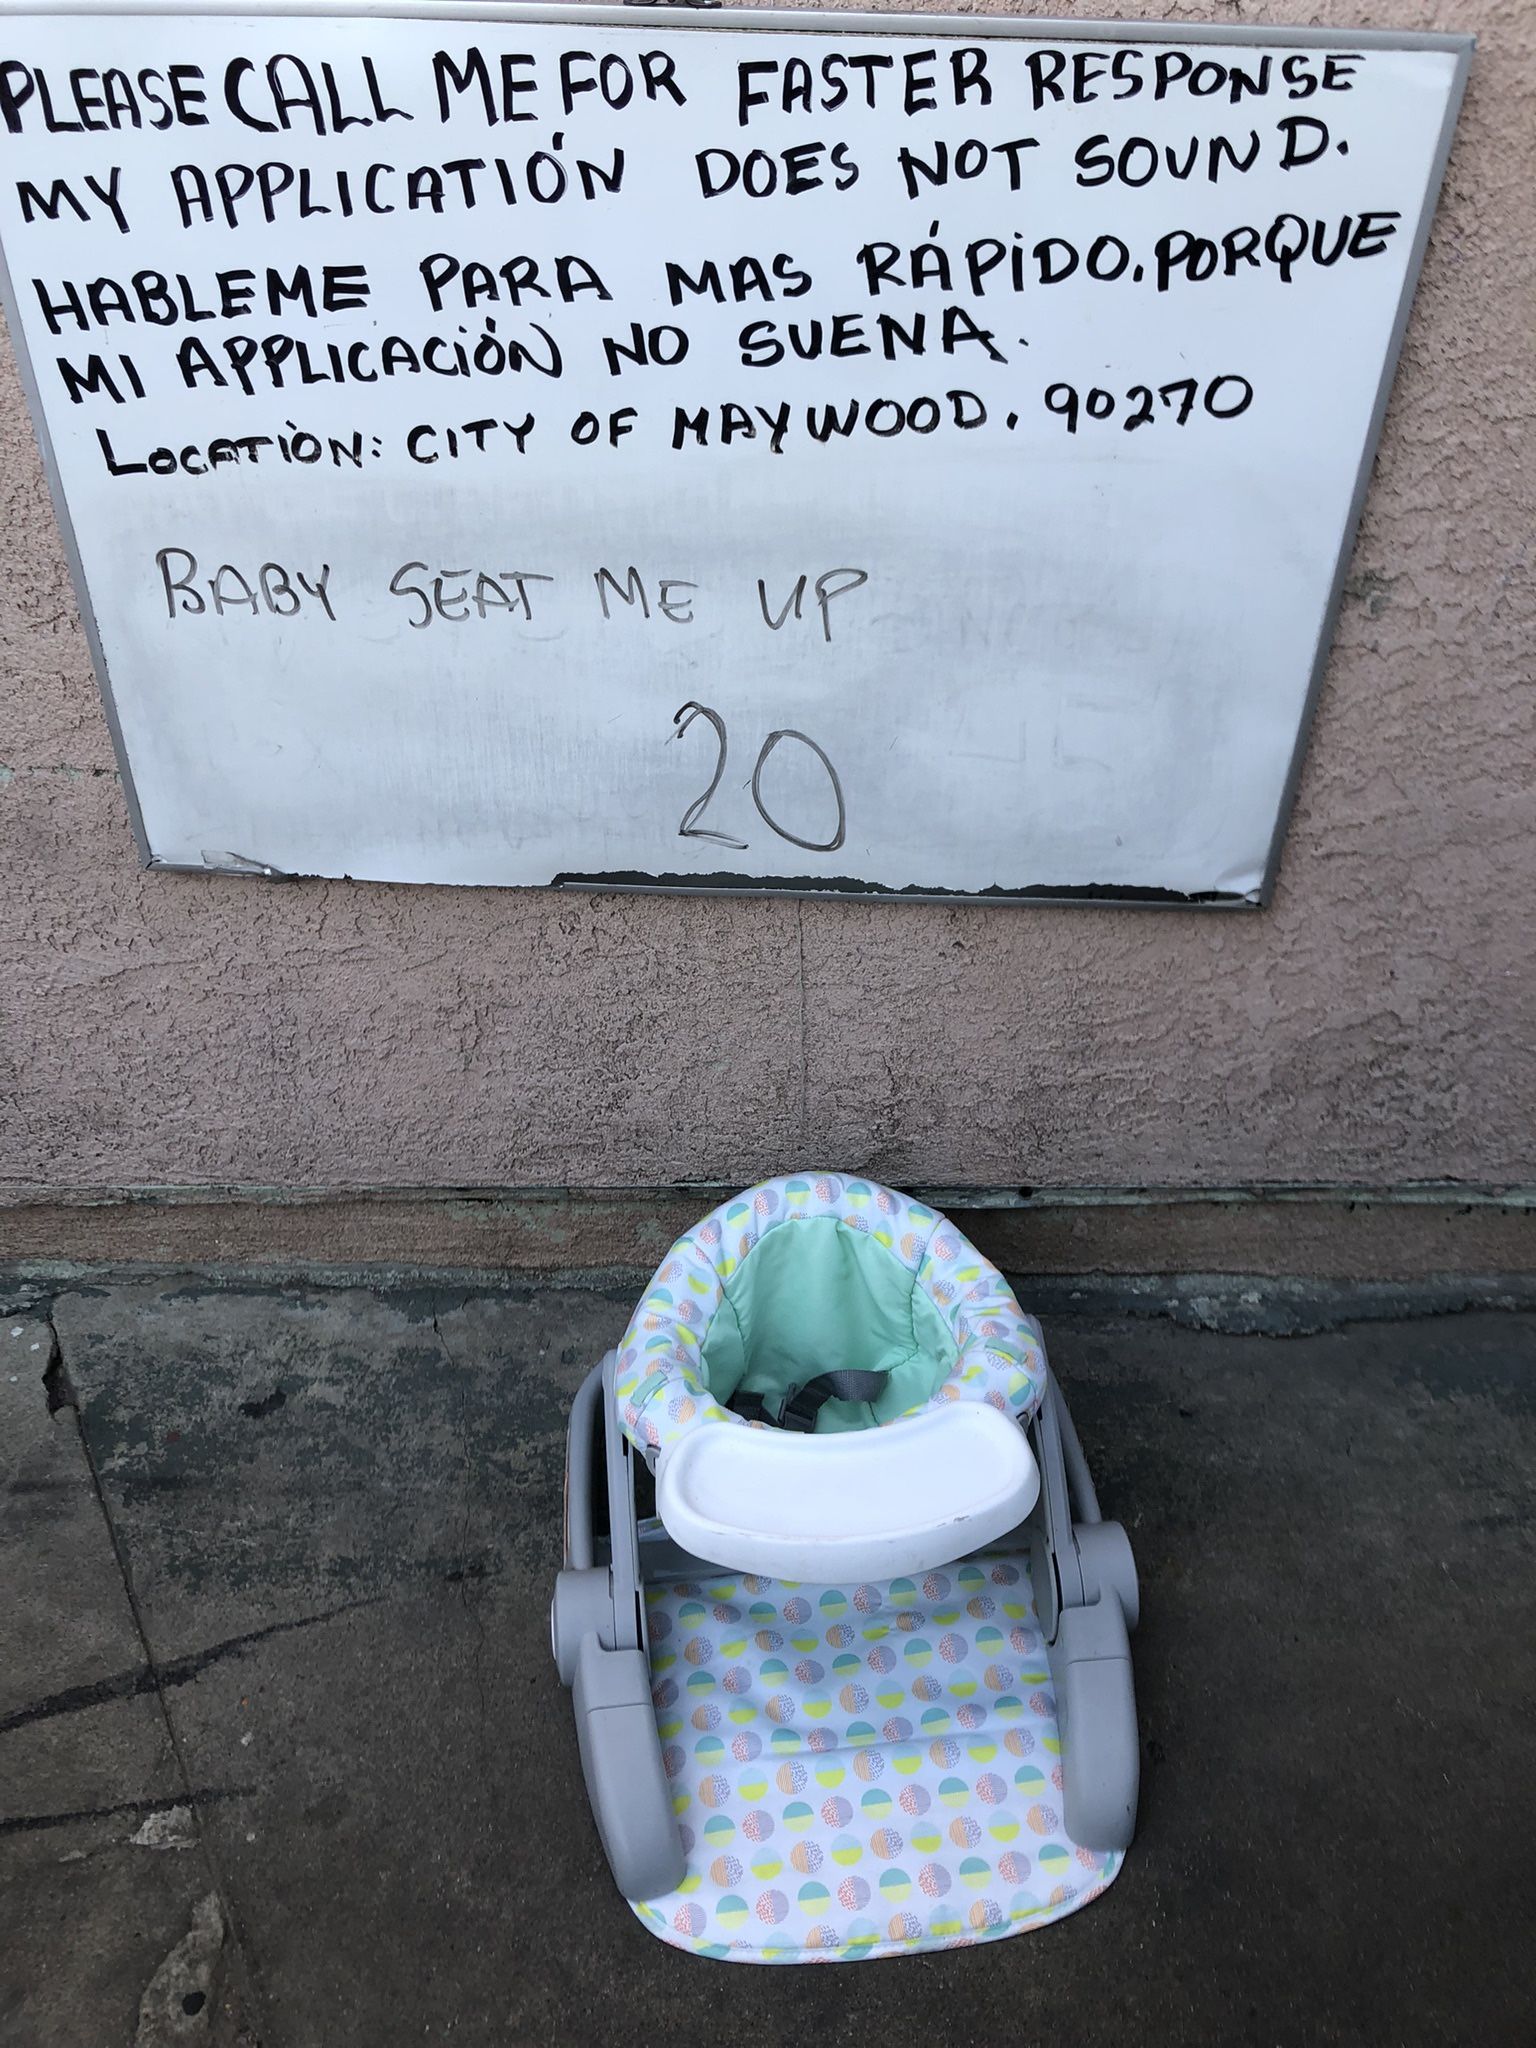 PLEASE CALL ME FOR FASTER RESPONSE
MY APPLICATIÓN DOES NOT SOUND.
HABLEME PARA MAS RÁPIDO. PORQUE
MI APPLICACIÓN NO SUENA.
LOCATION: CITY OF MAYWOOD. 90270
BABY SEAT ME UP
20